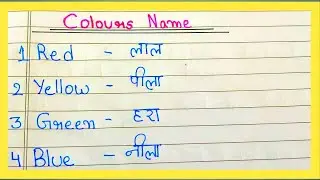 Colours Name
1 Red - लाल
2 Yellow - पीला
3 Green - हरा
4 Blue - नीला